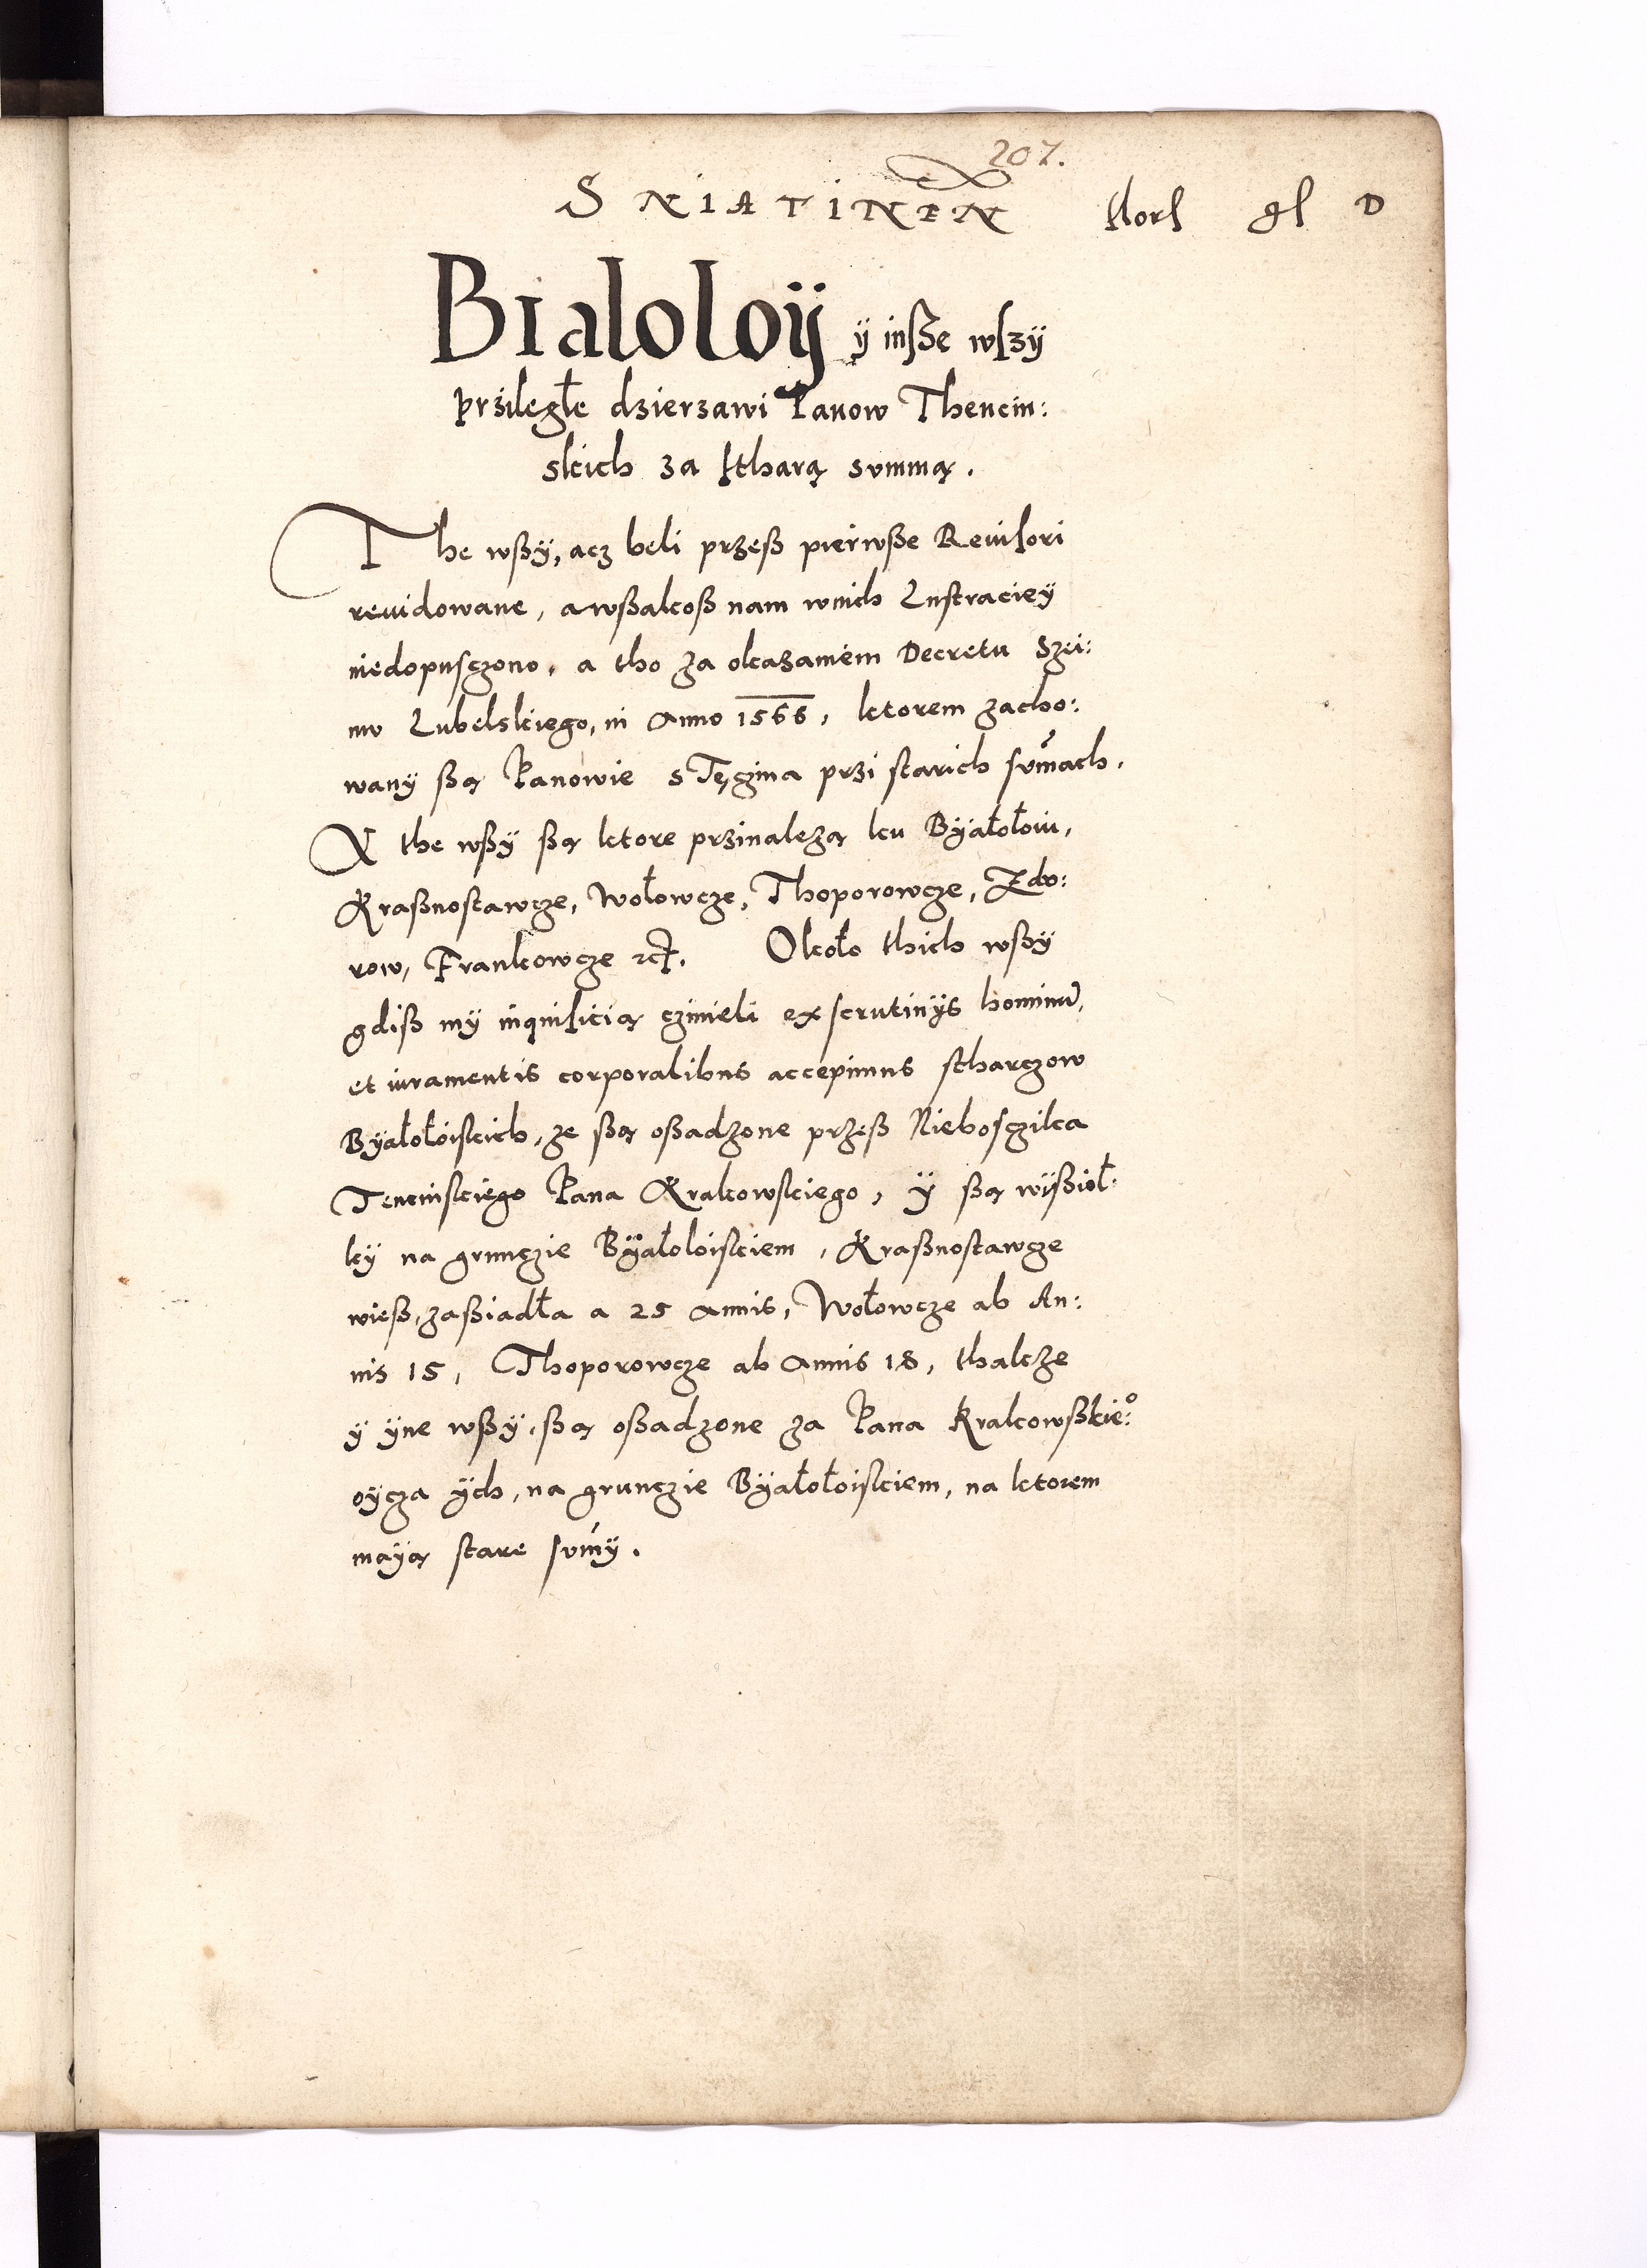 207.
SNIATINEN florſ gſ D
Bialoloÿ ÿ inſße wſzÿ
prziległe dzierzawi Panow Thencin:
skich za ſtharą summą.
The wßÿ, acz beli przeß pierwße Reuiſori
reuidowane, a wßakoß nam wnich Lustraciey
niedopuſczono, a tho za okazaniem Decretu Szei:
mu Lubelskiego, in Anno 1566, ktorem zacho:
wany ßą Panowie s Tęczina przi starich ſum̃ach.
A the wßÿ ßą ktore przinalezą ku Bÿałołoiu,
Kraßnostawcze, Wołowcze, Thoporowcze, Zdo:
row, Frankowcze etc. Około thich wßÿ
gdiß mÿ inquiſicią czinieli ex scrutinÿs hominũ,
et iuramentis corporalibus accepimus stharczow
Bÿałołoiſkich, ze ßą oßadzone przeß Nieboſczika
Tencinſkiego Pana Krakowſkiego, ÿ ßą wÿßioł:
kÿ na grunczie Bÿałoloiſkiem, Kraßnostawcze
wieß, zaßiadła a 25 Annis, Wołowcze ab An:
nis 15, Thoporowcze ab Annis 18, thakze
y ÿne wßÿ, ßą oßadzone za Pana Krakowßkie°:
oÿcza ÿch, na grunczie Bÿałołoiſkiem, na ktorem
maÿą stare ſum̃ÿ.